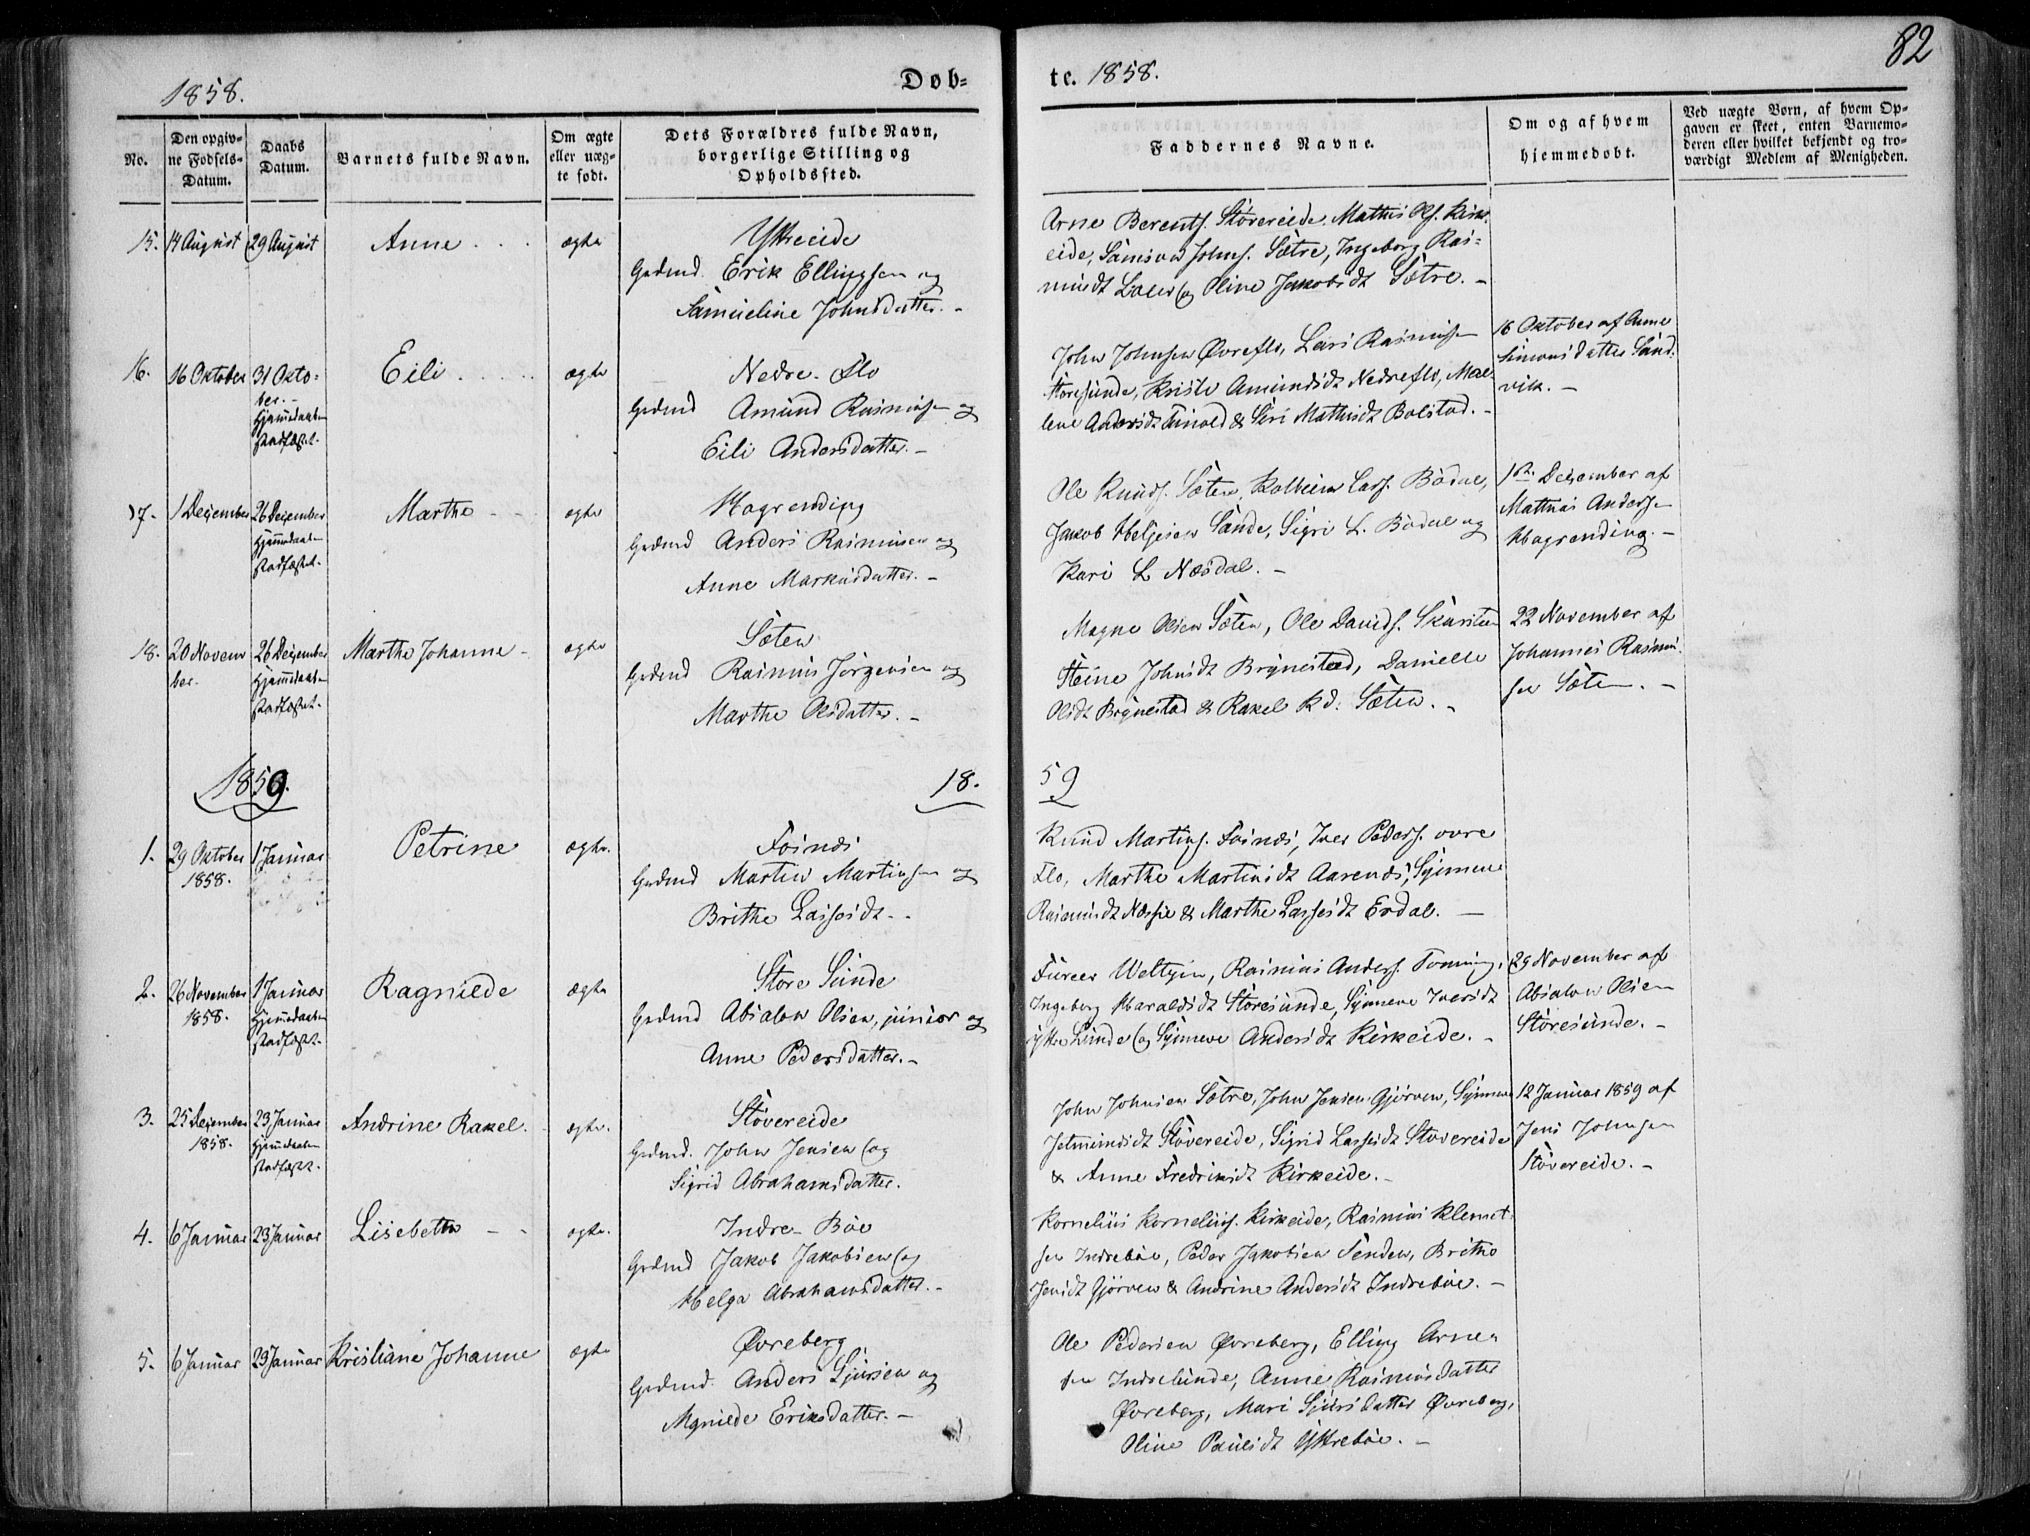 82
1858.
Døb-
te. 1858.
No.
Den opgiv-
ne Fødsels-
Datum.
Daabs
Datum.
Barnets fulde Navn.
Om ægte
eller uæg-
te født.
Dets Forældres fulde Navn,
borgerlige Stilling og
Opholdssted.
Faddernes Navne.
Om og af hvem
hjemmedøbt.
Ved uægte Børn, af hvem Op-
gaven er skeet, enten Barnemo-
deren eller hvilket bekjendt og tro-
værdigt Medlem af Menigheden.
15. 14 August 29 August Anne ægte
Ytreeide
Gadmd. Erik Ellingsen og
Samueline Johnsdatter. -
Arne Berents. Støvereide. Mathis Ols. Kirk-
eide, Samson Johns. Sætre, Ingeborg Ras-
musdt og Oline Jakobsdt Sætre. -
16. 16 Oktober 31 Okto-
ber. -
Hjemmedaaben
stadfæstet.
Eili ægte
Nedre-Flo
Gadmd Amund Rasmusen og
Eili Andersdatter. -
John Johnsen Øvreflo, Lars Rasmusen
Storesunde, Kristi Amundsdt Nedreflo, Mal-
lene Andersdt & Siri Mathisdt Bolstad. -
16 Oktober af Anne
Simonsdatter Sand-
vik. -
17. 1 December 26 December
Hjemmedaaben
stadfæstet.
Marthe ægte
Hagrending
Gadmd Anders Rasmusen og
Anne Markusdatter. -
Ole Knuds. Sæten, Kolbein Lars. Bødal,
Jakob Helgesen Sande, Sigri L. Bødal og
Kari L Næsdal. -
1ste December af
Mathias Andersen
Hagrending. -
18. 20 Novem
ber.
26 December
Hjemmedaaben
stadfæstet.
Marthe Johanne - ægte
Sæten
Gadmd Rasmus Jørgensen og
Marthe Olsdatter. -
Magne Olsen Sæten, Ole Davids. Skarsten
Steine Johnsdt Brynestad, Danielle
Olsdt Brynestad & Rakel R d: Sæten. -
22 November af
Johannes Rasmu-
sen Sæten. -
1859.
18.
59
1. 29 Oktober
1858.
1 Januar
Petrine ægte.
Foinæs
Gadmd Martin Martinsen og
Brithe Lassesdt. -
Knud Martins. Foinæs, Iver Peders. øvre
Flo, Marthe Martinsdt Aarenæs, Synneve
Rasmusdt & Marthe Lassesdt Erdal. -
2. 26 November
1858.
1 Januar
Hjemmedaaben
stadfæstet.
Ragnilde ægte
Store Sunde
Gadmd Absalon Olsen, junior og
Anne Pedersdatter. -
Rasmus Anders. Tonning,
Ingeborg Haraldsdt Storesunde, Synneve Iversdt
ytre Sunde og Synneve Andersdt Kirkeide. -
29 November af
Absalon Olsen
Storesunde. -
3. 25 December
1858.
23 Januar
Hjemmedaaben
stadfæstet.
Andrine Rakel. ægte.
Støvereide
Gadmd. John Jensen og
Sigrid Abrahamsdatter.
John Johnsen Sætre, John Jensen Gjørven, Synneve
Jetmundsdt Støvereide, Sigrid Lassesdt Støvereide
& Anne Fredriksdt Kirkeide. -
12 Januar 1859 af
Jens Johnsen
Støvereide. -
4. 6 Januar 23 Januar Lisebeth - - ægte.
Indre-Bøe
Gadmd Jakob Jakobsen og
Helga Abrahamsdatter. -
Kornelius Kornelius. Kirkeide, Rasmus Klemet-
sen Indrebøe, Peder Jakobsen Senden, Brithe
Jensdt Gjørven & Andrine Andersdt Indrebøe. -
5. 6 Januar 23 Januar Kristiane Johanne ægte
Øvreberg
Gadmd. Anders Sjursen og
Agnilde Eriksdatter. -
Ole Pedersen Øvreberg, Elling Arne-
sen Indresunde, Anne Rasmusdatter
Øvreberg, Mari Sjursdatter Øvreberg,
Oline Paulsdt Ytrebøe. -